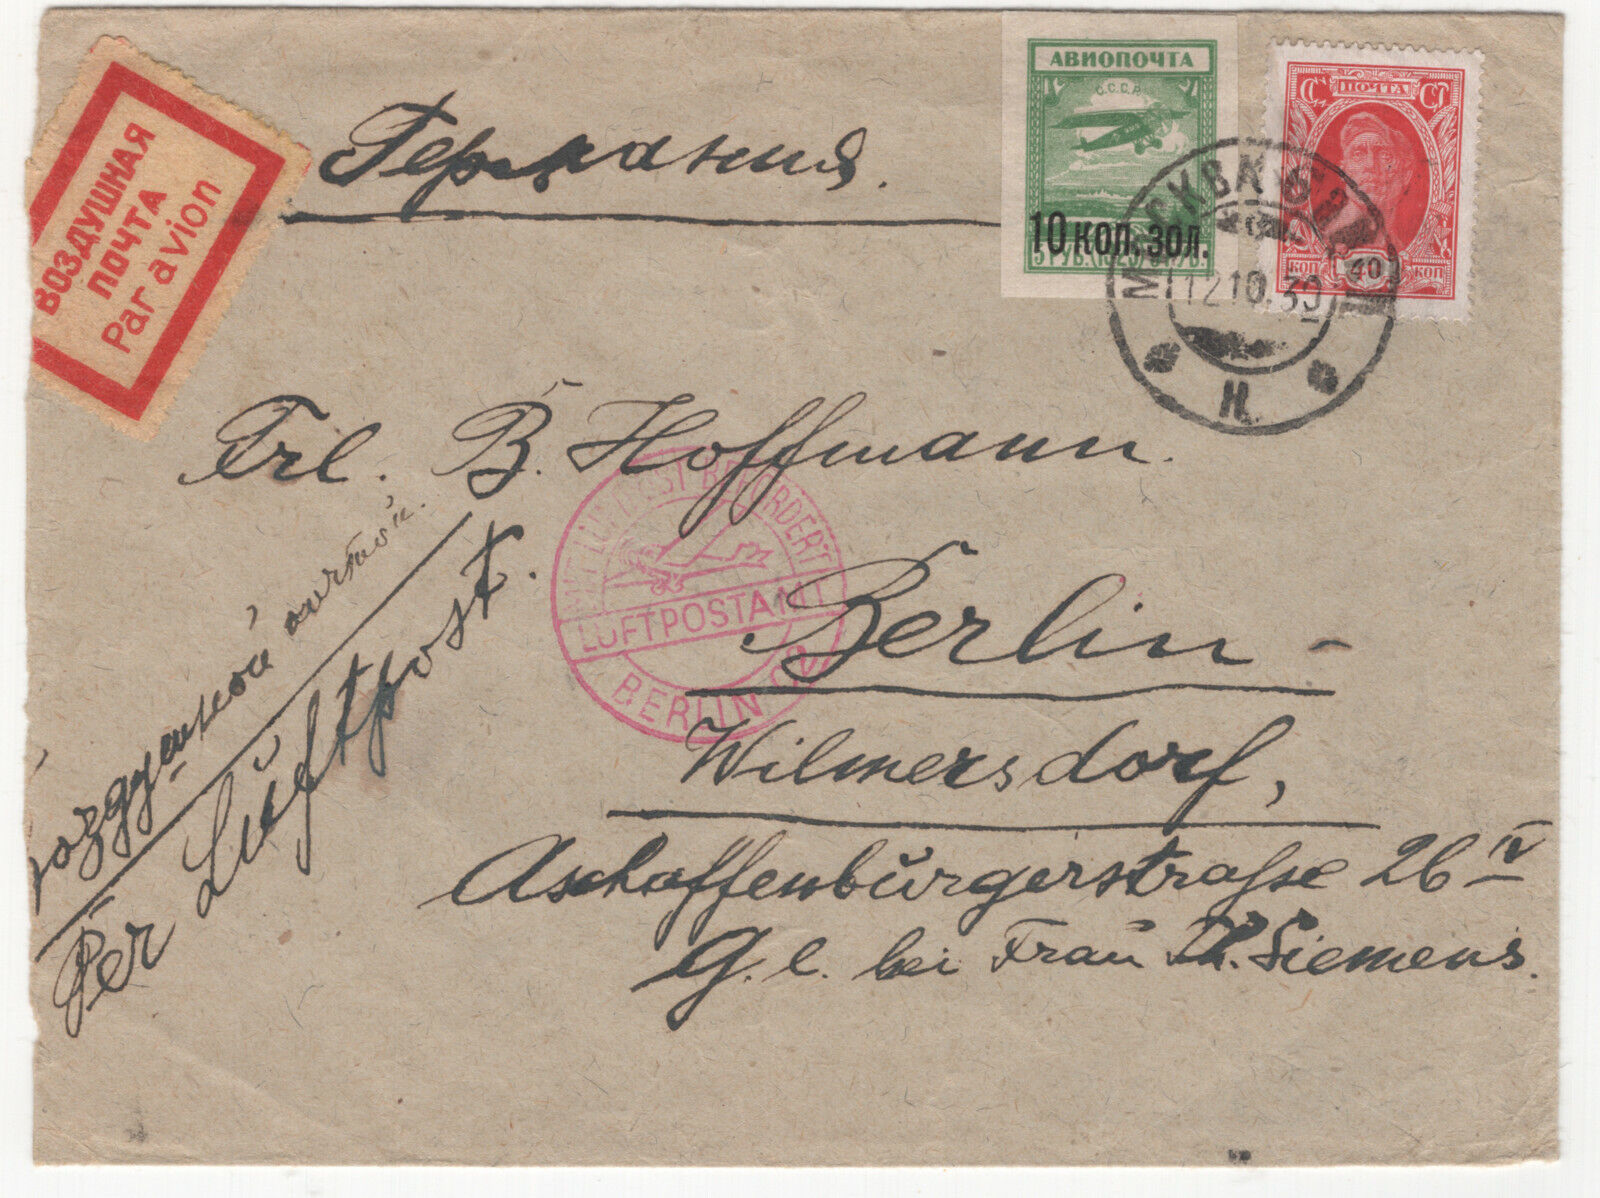 ВОЗДУШНАЯ
ПОЧТА
Par avion
Германия.
АВИОПОЧТА
С.С.С.Р.
10 КОП. ЗОЛ.
5 РУБ. (1923) 5 РУБ.
ПОЧТА
КОП 40 КОП
МОСКВА
12 10. 30
40
Н
Frl. B. Hoffmann.
MIT LUFTPOST BEFÖRDERT
LUFTPOSTAMT
BERLIN C2
Berlin -
Wilmersdorf,
Aschaffenburgerstraße 26 IV
G. l. bei Frau Th. Siemens.
воздушной почтой.
Per Luftpost.